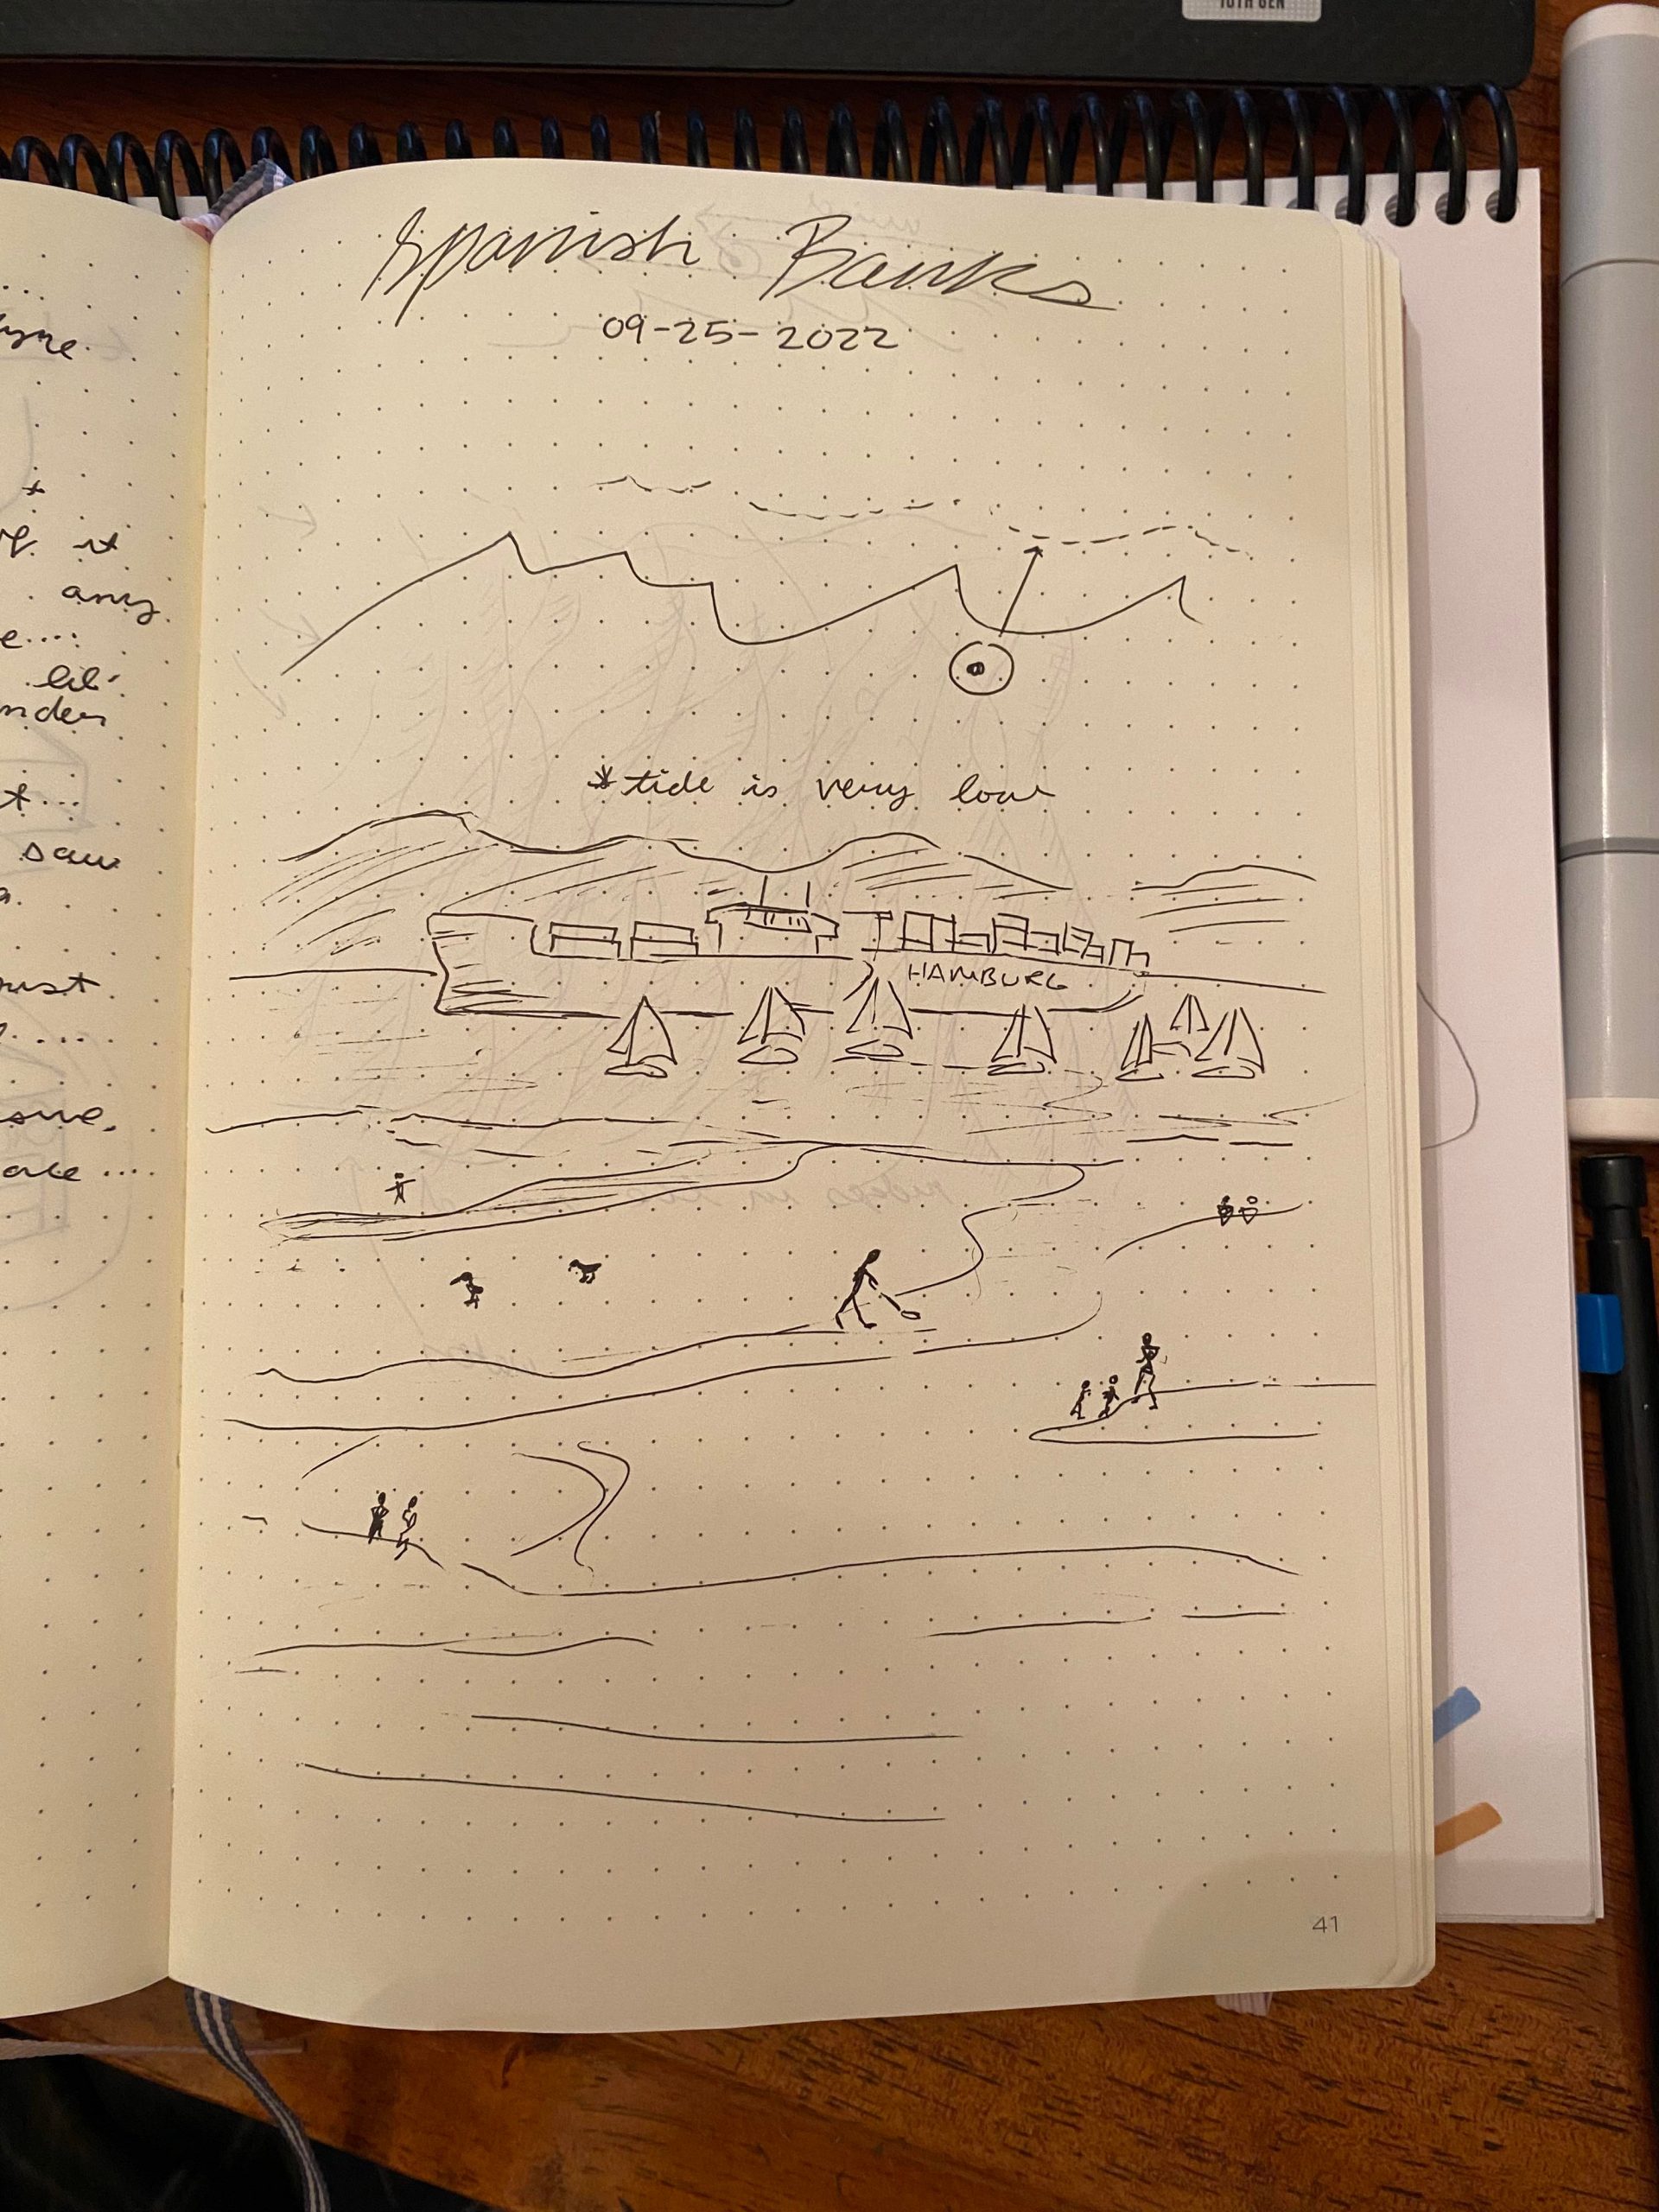 10TH GEN
Spanish Banks
09-25-2022
*tide is very low
HAMBURG
it
any
e....
lil'
t...
saw
a.
ust
....
sure,
ale ....
41